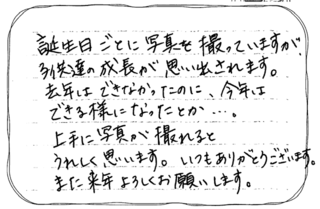 誕生日ごとに写真を撮っていますが、
子供達の成長が思い出されます。
去年はできなかったのに、今年は
できる様になったとか…。
上手に写真が撮れると
うれしく思います。いつもありがとうございます。
また来年よろしくお願いします。